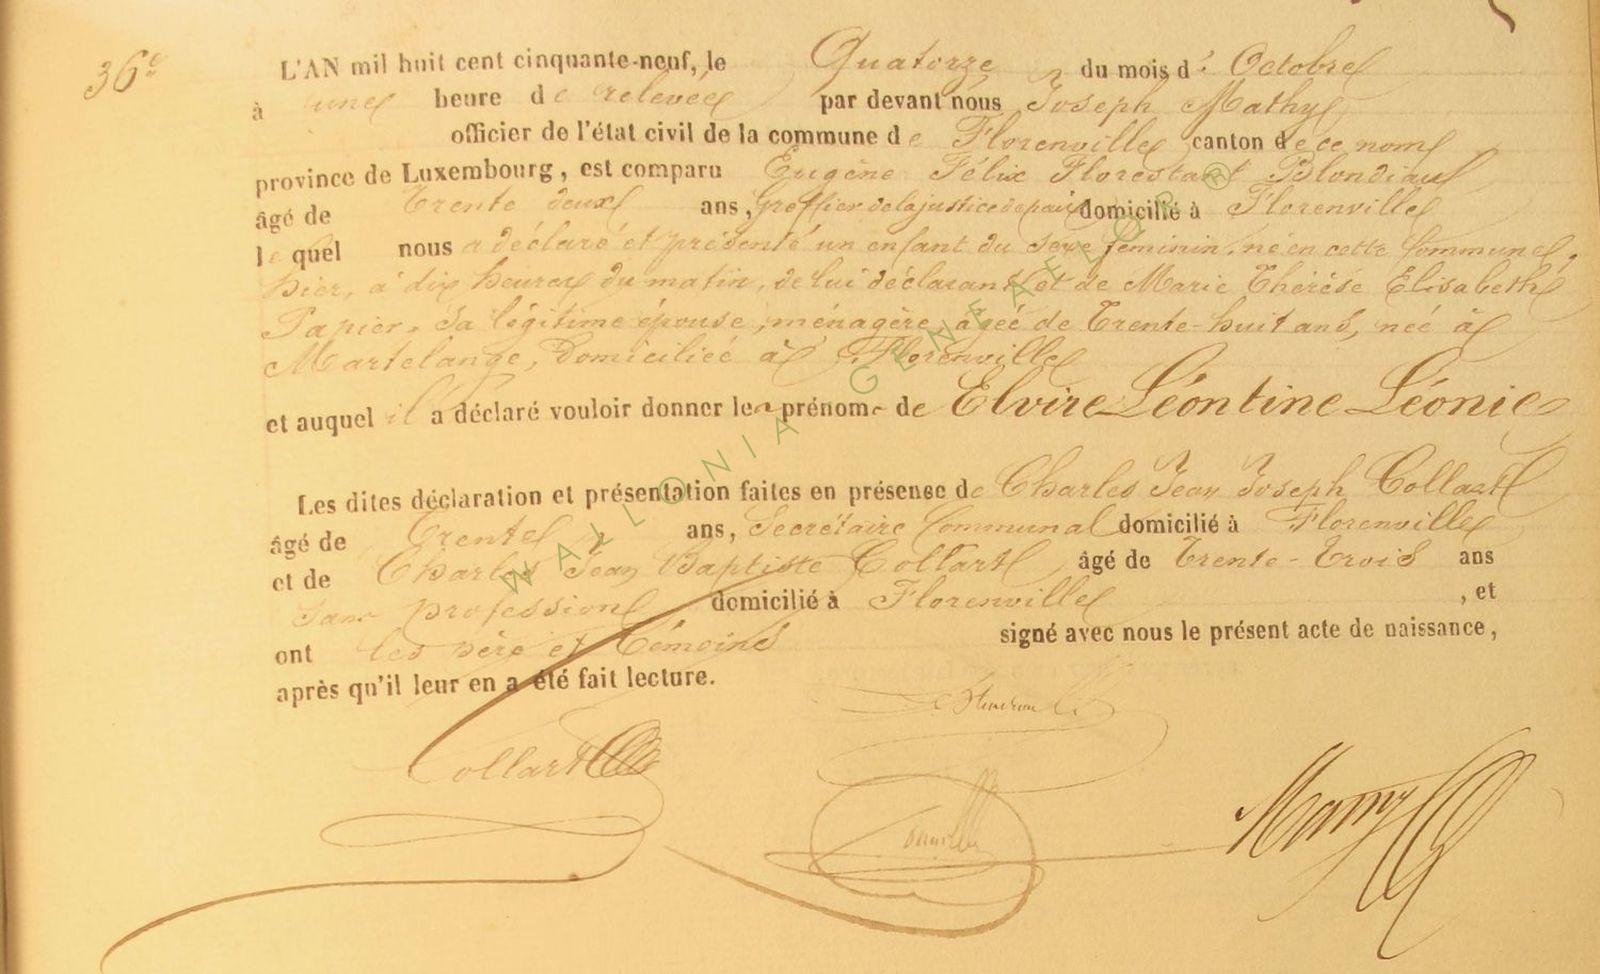 36e L'AN mil huit cent cinquante-neuf, le Quatorze du mois d' Octobre
à une heure de relevée par devant nous Joseph Mathy
officier de l'état civil de la commune de Florenville canton de ce nom
province de Luxembourg, est comparu Eugène Félix Florestant Blondiau
âgé de Trente deux ans, Greffier de la justice de paix domicilié à Florenville
le quel nous a déclaré et présenté un enfant du sexe féminin, né en cette Commune,
hier, à dix heures du matin, de lui déclarant et de Marie Thérèse Elisabeth
Papier, sa légitime épouse, ménagère, âgée de Trente-huit ans, née à
Martelange, domiciliée à Florenville
et auquel il a déclaré vouloir donner les prénoms de Elvire Léontine Léonie
Les dites déclaration et présentation faites en présence de Charles Jean Joseph Collart
âgé de Trente ans, Secrétaire Communal domicilié à Florenville
et de Charles Jean Baptiste Collart âgé de Trente-Trois ans
sans profession domicilié à Florenville, et
ont les père et témoins signé avec nous le présent acte de naissance,
après qu'il leur en a été fait lecture.
Collart
WALLONIA-GENEALOR ®